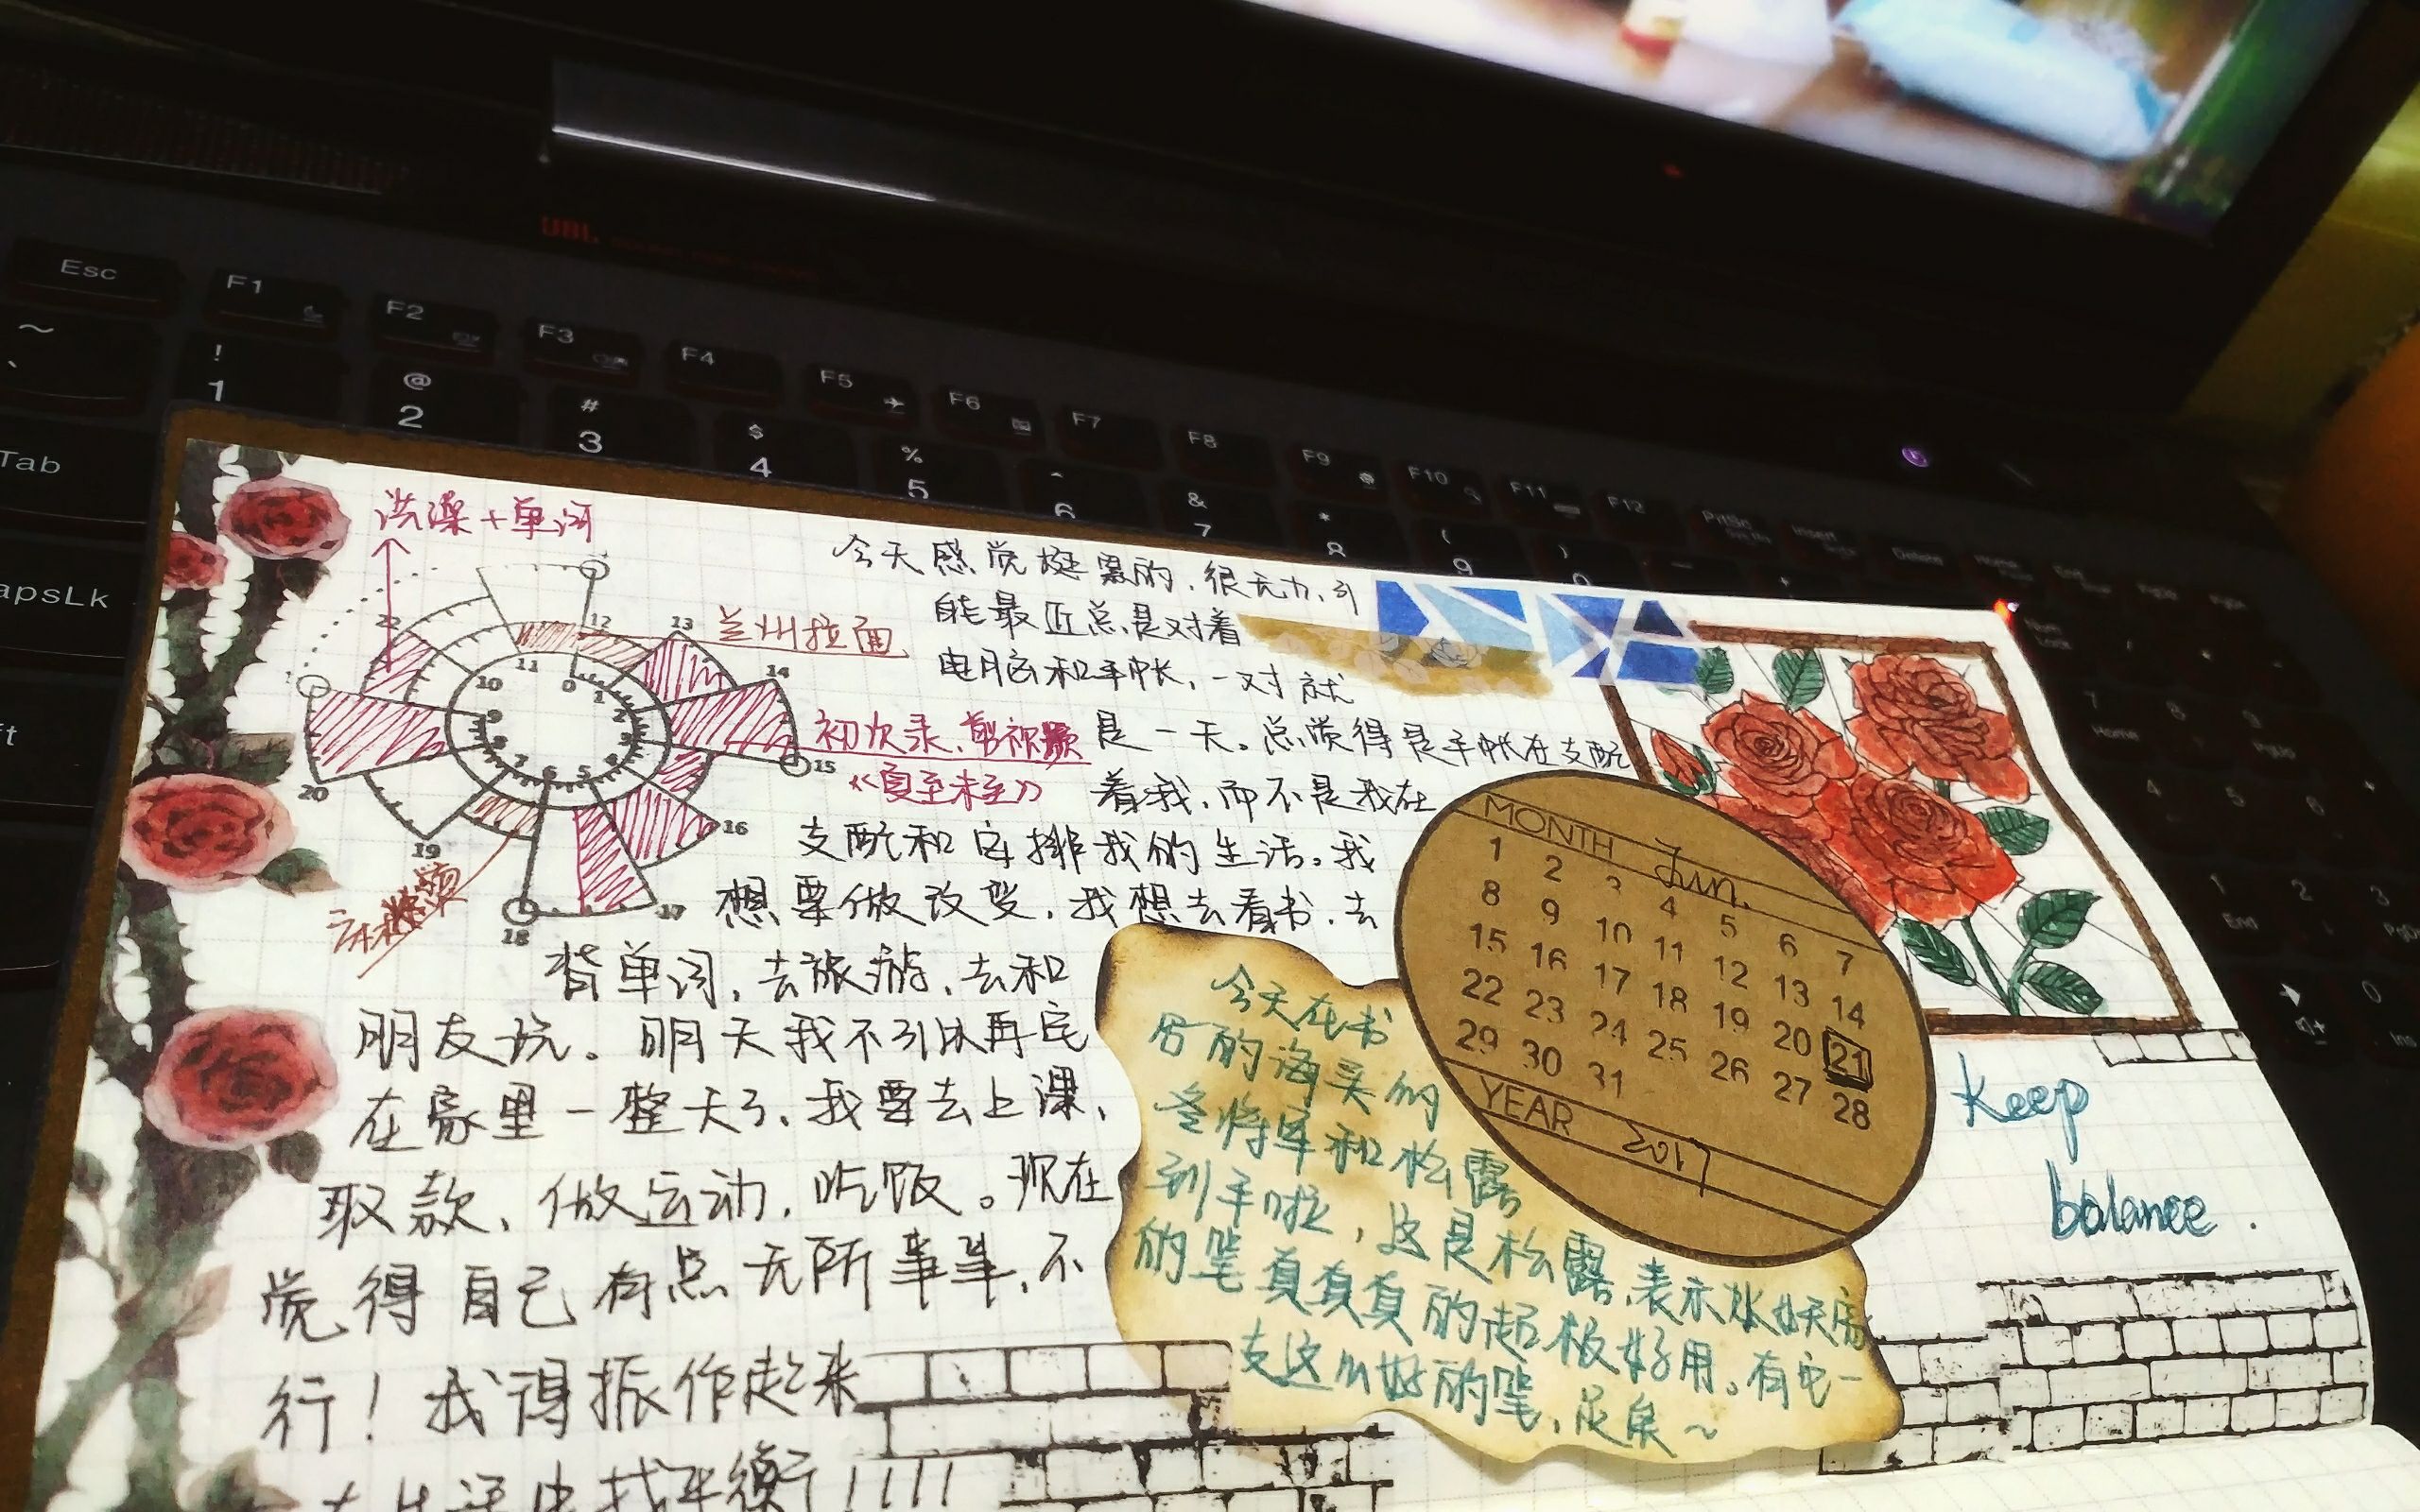 洗澡+单词
今天感觉挺累的,很无力,可
能最近总是对着
电脑和手帐,一对就
是一天。总觉得是手帐在支配
着我,而不是我在
支配和安排我的生活。我
想要做改变,我想去看书,去
背单词,去旅游,去和
朋友玩。明天我不可以再宅
在家里一整天了,我要去上课,
取款,做运动,吃饭。现在
觉得自己有点无所事事,不
行!我得振作起来
生活中找平衡!!!!
兰州拉面
初次录、剪视频
《夏至未至》
12
13
14
15
16
17
18
19
20
22
0
1
2
3
4
5
6
7
8
9
10
11
今天在书
的海买的
冬将军和松露
到手啦,这是松露,表示
的笔真真真的超极好用。有它一
支这么好的笔,足矣~
MONTH Jun.
1 2 3 4 5 6 7
8 9 10 11 12 13 14
15 16 17 18 19 20 21
22 23 24 25 26 27 28
29 30 31
YEAR 2017
keep
balance.
Esc
F1
F2
F3
F4
F5
F6
F7
F8
F9
F10
F11
F12
PrtSc
Insert
Delete
Home
~
! 1
@ 2
# 3
$ 4
% 5
^ 6
& 7
* 8
( 9
) 0
Tab
apsLk
ft
JBL